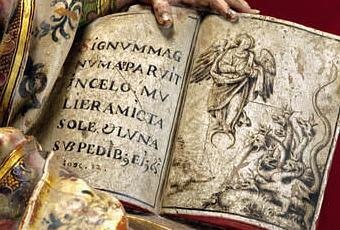 SIGNVM MAG
NVM APARVIT
IN CELO, MV
LIER AMICTA
SOLE, & LVNA
SVB PEDIB9 EI9 &